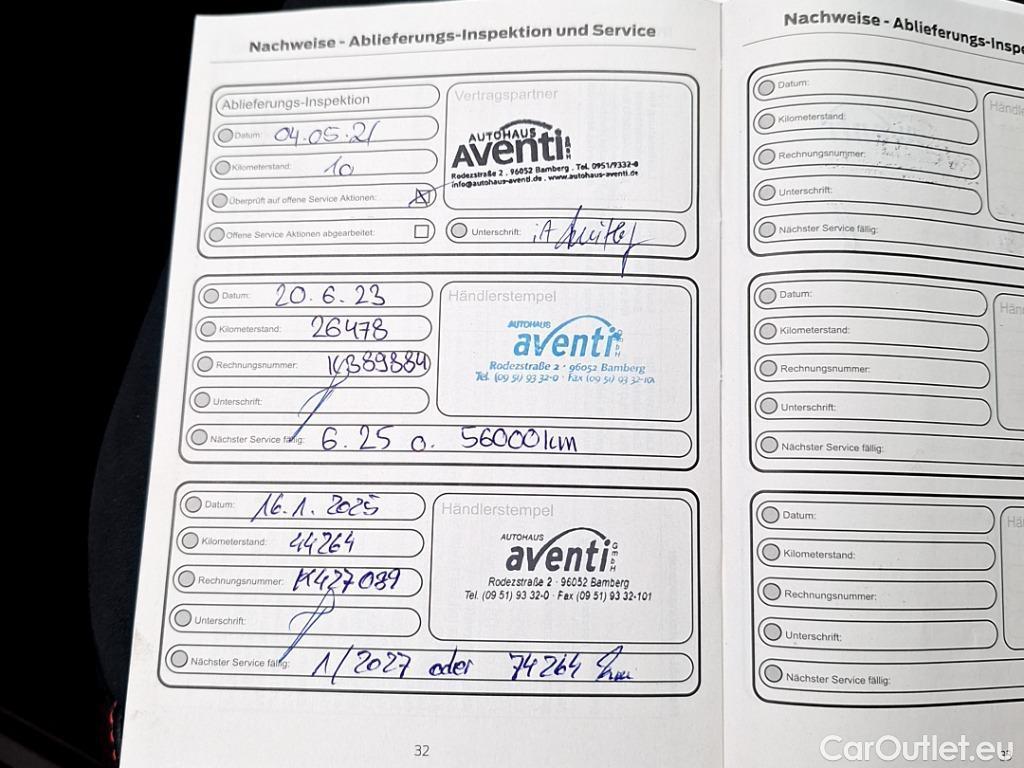 Nachweise - Ablieferungs-Inspektion und Service
Ablieferungs-Inspektion
Datum: 04.05.21
Kilometerstand: 10
Überprüft auf offene Service Aktionen:
Offene Service Aktionen abgearbeitet:
Vertragspartner
AUTOHAUS
aventi GmbH
Rodezstraße 2 . 96052 Bamberg . Tel. 0951/9332-0
info@autohaus-aventi.de . www.autohaus-aventi.de
Unterschrift: iA
Datum: 20.6.23
Kilometerstand: 26478
Rechnungsnummer: KB89884
Unterschrift:
Nächster Service fällig: 6.25 o. 56000km
Händlerstempel
AUTOHAUS
aventi GmbH
Rodezstraße 2 · 96052 Bamberg
Tel. (09 51) 93 32-0 · Fax (09 51) 93 32-101
Datum: 16.1.2025
Kilometerstand: 44264
Rechnungsnummer: K427089
Unterschrift:
Nächster Service fällig: 1/2027 oder 74264 km
Händlerstempel
AUTOHAUS
aventi GmbH
Rodezstraße 2 · 96052 Bamberg
Tel. (09 51) 93 32-0 · Fax (09 51) 93 32-101
32
Nachweise - Ablieferungs-Inspe
Datum:
Kilometerstand:
Rechnungsnummer:
Unterschrift:
Nächster Service fällig:
Händ
Datum:
Kilometerstand:
Rechnungsnummer:
Unterschrift:
Nächster Service fällig:
Hän
Datum:
Kilometerstand:
Rechnungsnummer:
Unterschrift:
Nächster Service fällig:
Hä
CarOutlet.eu